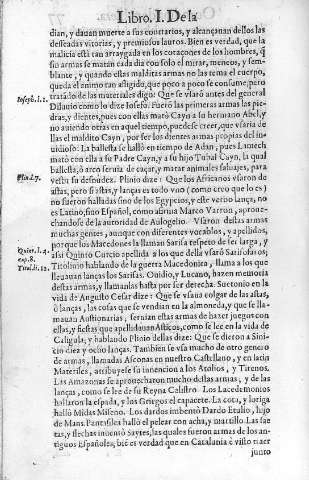 Libro. I. De la
dian, y dauan muerte a sus contrarios, y alcançauan dellos las
desseadas vitorias, y premiosos lauros. Bien es verdad, que la
malicia està tan arraygada en los coraçones de los hombres, q̃
sin armas se matan cada dia con solo el mirar, meneos, y sem-
blante, y quando estas malditas armas no las tema el cuerpo,
queda el animo tan afligido, que poco a poco se consume, pero
tratãdo de las materiales digo: Que se vsarõ antes del general
Iosepb. l. 1.
Diluuio como lo dize Iosefo. Fuerõ las primeras armas las pie-
dras, y dientes, pues con ellas mató Cayn a su hermano Abel, y
no auiendo otras en aquel tiempo, puedese creer, que vsaria de
ellas el maldito Cayn, por ser los dientes armas propias del in-
uidioso. La ballesta se hallò en tiempo de Adan, pues Lamech
mató con ella a su Padre Cayn, y a su hijo Tubal Cayn, la qual
ballesta, ò arco seruia de caçar, y matar animales saluajes, para
Plin. l. 7.
vestir su desnudez. Plinio dize: Que los Africanos vsaron de
astas, pero si astas, y lanças es todo vno (como creo que lo es)
no fueron halladas sino de los Egypcios, y este verbo lança, no
es Latino, sino Español, como afirma Marco Varron, aproue-
chandose de la autoridad de Aulogelio. Vsaron destas armas
muchas gentes, aunque con diferentes vocablos, y apellidos,
Quint. l. 4.
porque los Macedones la llaman Sarisa respeto de ser larga, y
cap. 8.
assi Quinto Curcio apellida a los que della vsarõ Sarisoforos;
Titol. li. 12.
Titolinio hablando de la guerra Macedonica, llama a los que
lleuauan lanças los Sarisas. Ouidio, y Lucano, hazen memoria
destas armas, y llamanlas hasta por ser derecha. Suetonio en la
vida de Augusto Cesar dize: Que se vsaua colgar de las astas,
ò lanças, las cosas que se vendian en la almoneda, y que se lla-
mauan Austionarias, seruian estas armas de hazer juegos con
ellas, y fiestas que apellidauan Asticos, como se lee en la vida de
Caligula; y hablando Plinio dellas dize: Que se dieron a Sini-
cio diez y ocho lanças. Tambien se vsa mucho de otro genero
de armas, llamadas Asconas en nuestro Castellano, y en latin
Materiles, atribuyese su inuencion a los Atolios, y Tirenos.
Las Amazonas se aprouecharon mucho destas armas, y de las
lanças, como se lee de su Reyna Celistro. Los Lacedemonios
hallaron la espada, y los Griegos el capacete. La cota, y loriga
hallò Midas Miseno. Los dardos inuentò Dardo Etulio, hijo
de Mars. Pantasilea hallò el pelear con acha, y martillo. Las sae-
tas, y flechas inuentò Sayres, las quales fueron armas de los an-
tiguos Españoles; biẽ es verdad que en Catalunia è visto traer
junto